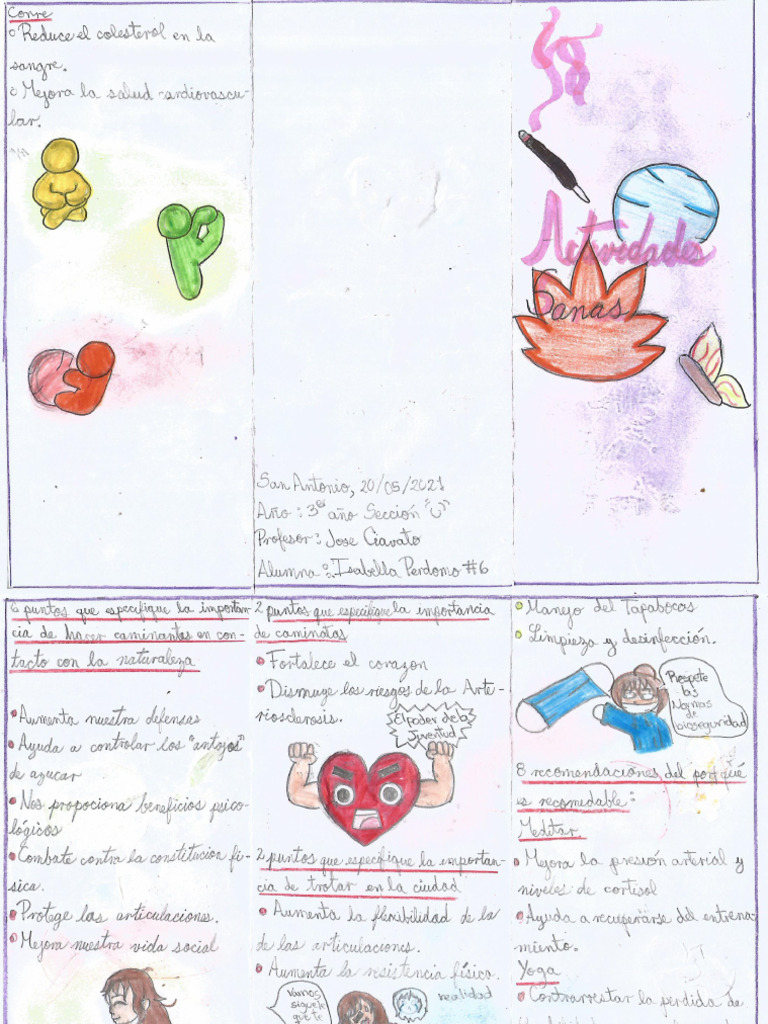 Corre
Reduce el colesterol en la
sangre.
Mejora la salud cardiovascu-
lar.
San Antonio, 20/05/2021
Año: 3er año Sección "U"
Profesor: Jose Ciavato
Alumna: Isabella Perdomo #6
Actividades
Sanas
6 puntos que especifique la importan-
cia de hacer caminantas en con-
tacto con la naturaleza
Aumenta nuestra defensas
Ayuda a controlar los "antojos"
de azucar
Nos propociona beneficios psico-
lógicos
Combate contra la constitucion fi-
sica.
Protege las articulaciones.
Mejora nuestra vida social
2 puntos que especifique la importancia
de caminatas
Fortalece el corazon
Dismuge los riesgos de la Arte-
riosclerosis.
El poder de la
Juventud
2 puntos que especifique la importan-
cia de trotar en la ciudad
Aumenta la flexibilidad de la
de las articulaciones.
Aumenta la resistencia física.
Vamos
sigue
que te
realidad
Manejo del Tapabocas
Limpieza y desinfección.
Respete
las
Normas
de
bioseguridad
8 recomendaciones del por qué
es recomedable:
Meditar
Mejora la presión arterial y
niveles de cortisol
Ayuda a recuperarse del entrena-
miento.
Yoga
Contrarrestar la perdida de